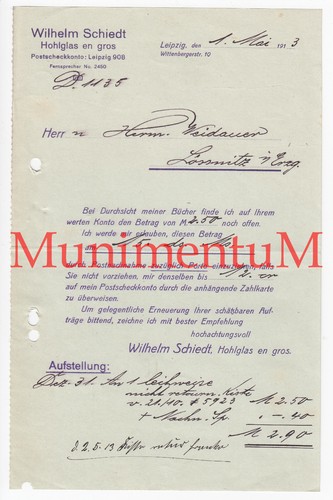 Wilhelm Schiedt
Hohlglas en gros
Postscheckkonto: Leipzig 908
Fernsprecher No. 2460
Leipzig, den 1. Mai 1913
Wittenbergerstr. 10
D. 1135
Herrn Herm. Weidauer
Lössnitz i/ Erzg.
Bei Durchsicht meiner Bücher finde ich auf Ihrem
werten Konto den Betrag von M 2.50 noch offen.
Ich werde mir erlauben, diesen Betrag
am 15. ds. Mts.
MunimentuM
durch Postnachnahme zuzüglich Porti einzuziehen, falls
Sie nicht vorziehen, mir denselben bis
auf mein Postscheckkonto durch die anhängende Zahlkarte
zu überweisen.
Um gelegentliche Erneuerung Ihrer schätzbaren Auf-
träge bittend, zeichne ich mit bester Empfehlung
hochachtungsvoll
Wilhelm Schiedt, Hohlglas en gros.
Aufstellung:
Dez. 31. An 1 leihweise
nicht retourn. Kiste
v. 21/10. # 5923 M 2.50
+ Nachn. Sp. . -.40
M 2.90
d. 2.5.13 Kiste retour franko